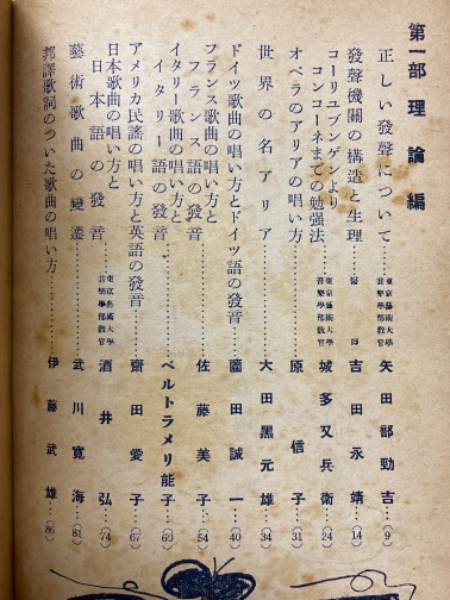 第一部 理論編
正しい發聲について……東京藝術大學音樂學部教官 矢田部勁吉…(9)
發聲機關の構造と生理……醫師 吉田永靖…(14)
コーリユブンゲンより
コンコーネまでの勉强法……東京藝術大學音樂學部教官 城多又兵衛…(24)
オペラのアリアの唱い方……原信子…(31)
世界の名アリア……大田黒元雄…(34)
ドイツ歌曲の唱い方とドイツ語の發音……薗田誠一…(40)
フランス歌曲の唱い方と
フランス語の發音……佐藤美子…(54)
イタリー歌曲の唱い方と
イタリー語の發音……ベルトラメリ能子…(60)
アメリカ民謠の唱い方と英語の發音……齋田愛子…(67)
日本歌曲の唱い方と
日本語の發音……東京藝術大學音樂學部教官 酒井弘…(74)
藝術歌曲の變遷……武川寛海…(81)
邦譯歌詞のついた歌曲の唱い方……伊藤武雄…(86)